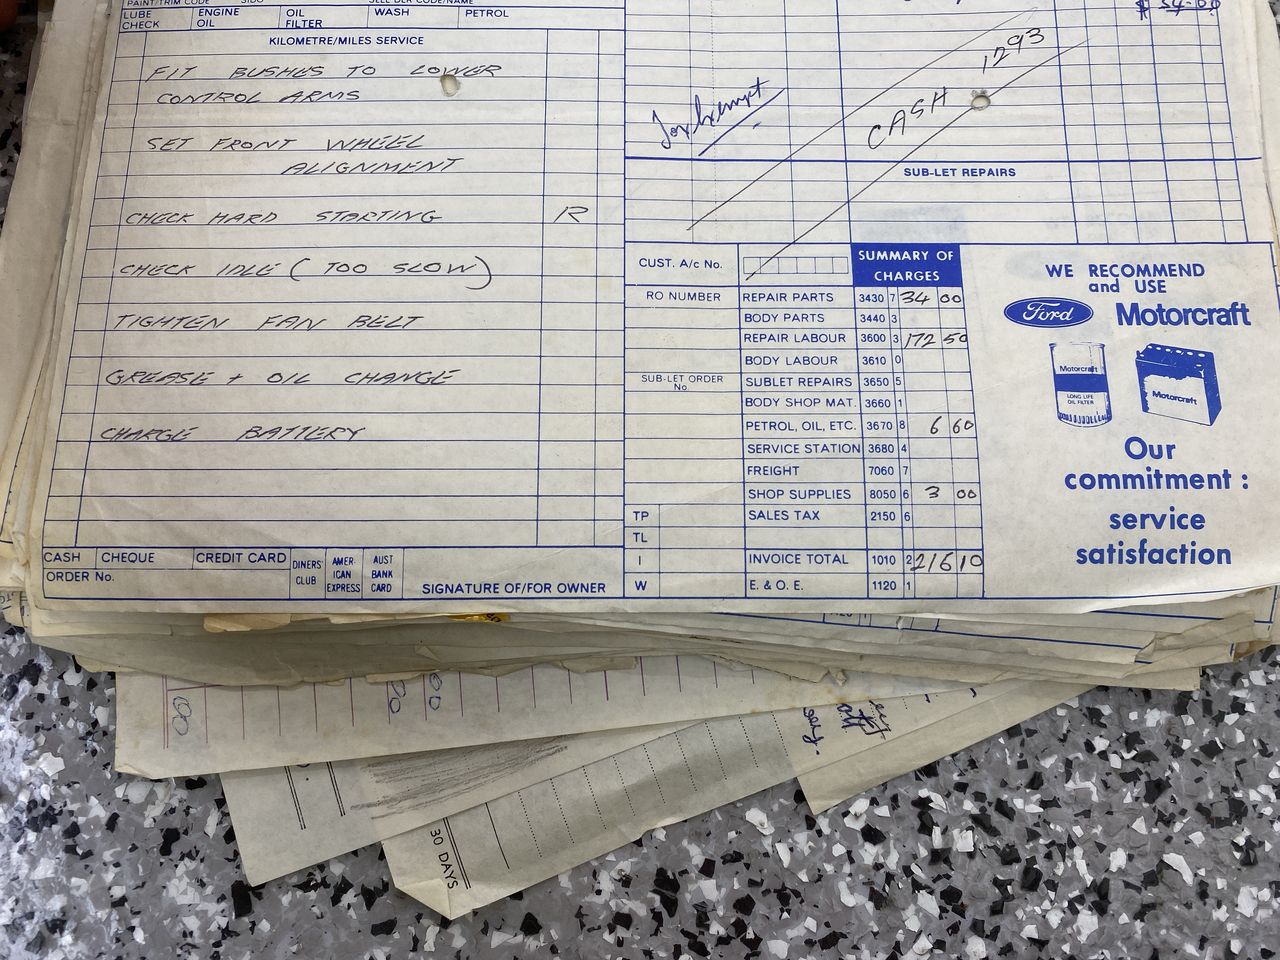 PAINT/TRIM CODE
LUBE CHECK
ENGINE OIL
OIL FILTER
WASH
PETROL
KILOMETRE/MILES SERVICE
FIT BUSHES TO LOWER
CONTROL ARMS
SET FRONT WHEEL
ALIGNMENT
CHECK HARD STARTING R
CHECK IDLE (TOO SLOW)
TIGHTEN FAN BELT
GREASE + OIL CHANGE
CHARGE BATTERY
CASH CHEQUE CREDIT CARD
DINERS' CLUB
AMERICAN EXPRESS
AUST BANK CARD
ORDER No.
SIGNATURE OF/FOR OWNER
Tax Exempt
CASH 1293
SUB-LET REPAIRS
CUST. A/c No.
SUMMARY OF CHARGES
RO NUMBER
REPAIR PARTS 3430 7 34 00
BODY PARTS 3440 3
REPAIR LABOUR 3600 3 172 50
BODY LABOUR 3610 0
SUB-LET ORDER No.
SUBLET REPAIRS 3650 5
BODY SHOP MAT. 3660 1
PETROL, OIL, ETC. 3670 8 6 60
SERVICE STATION 3680 4
FREIGHT 7060 7
SHOP SUPPLIES 8050 6 3 00
TP SALES TAX 2150 6
TL
I INVOICE TOTAL 1010 2 216 10
W E. & O. E. 1120 1
WE RECOMMEND
and USE
Ford Motorcraft
Motorcraft
LONG LIFE OIL FILTER
Motorcraft
Our
commitment :
service
satisfaction
00
00
30 DAYS